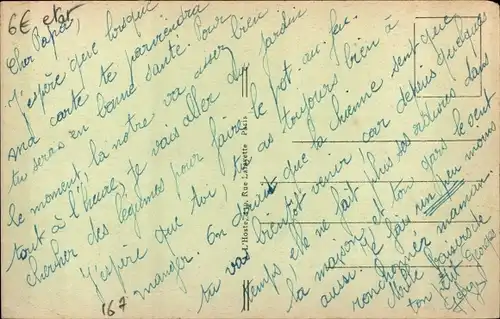 6€ etat
Cher Papa,
J'espère que lorsque
ma carte te parviendra
tu seras en bonne santé. Pour
le moment, la nôtre va assez bien
tout à l'heure, je vais aller au jardin
chercher des légumes pour faire le pot-au-feu.
J'espère que toi, tu as toujours bien à
manger. On dirait que la chienne sent que
tu vas bientôt venir car depuis quelques
temps elle ne fait plus ses ordures dans
la maison et ton gars le sent
aussi. Je fais un peu moins
ronchonner maman.
Mille baisers de
ton petit Georges
167
L'Hoste, Rue Lafayette Paris